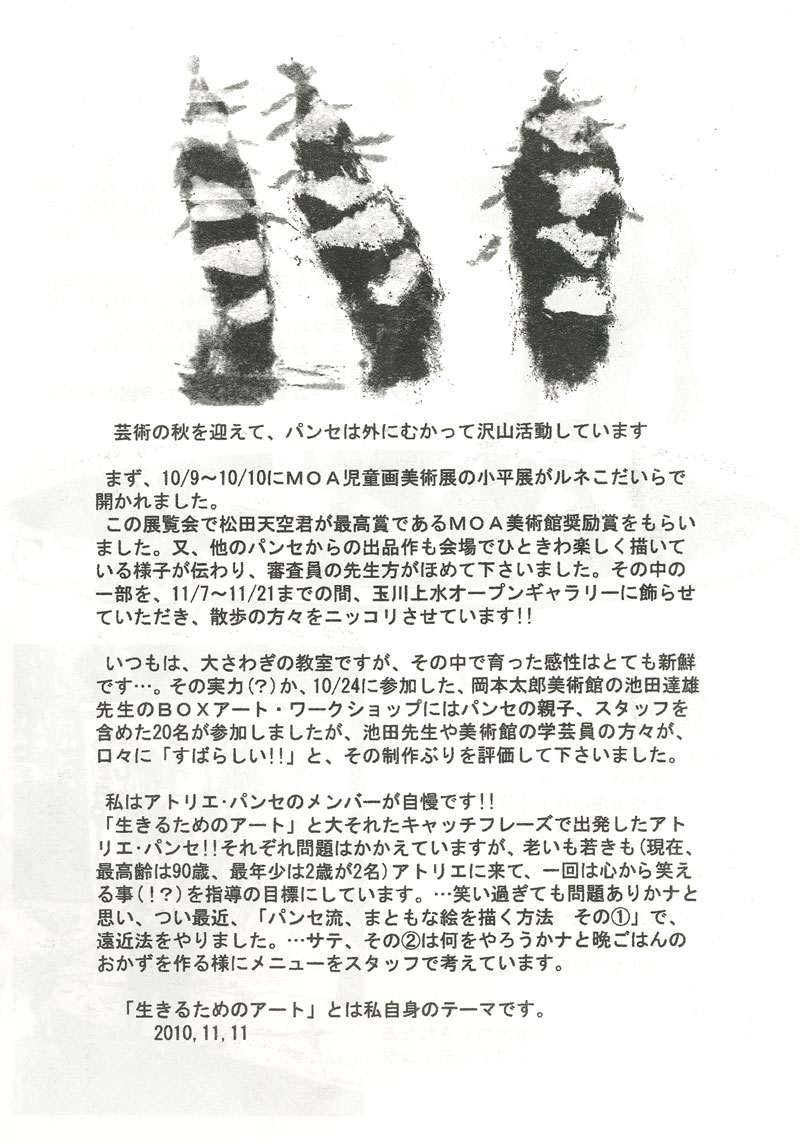 芸術の秋を迎えて、パンセは外にむかって沢山活動しています
まず、10/9～10/10にＭＯＡ児童画美術展の小平展がルネこだいらで
開かれました。
この展覧会で松田天空君が最高賞であるＭＯＡ美術館奨励賞をもらい
ました。又、他のパンセからの出品作も会場でひときわ楽しく描いて
いる様子が伝わり、審査員の先生方がほめて下さいました。その中の
一部を、11/7～11/21までの間、玉川上水オープンギャラリーに飾らせ
ていただき、散歩の方々をニッコリさせています!!
いつもは、大さわぎの教室ですが、その中で育った感性はとても新鮮
です…。その実力(？)か、10/24に参加した、岡本太郎美術館の池田達雄
先生のＢＯＸアート・ワークショップにはパンセの親子、スタッフを
含めた20名が参加しましたが、池田先生や美術館の学芸員の方々が、
口々に「すばらしい!!」と、その制作ぶりを評価して下さいました。
私はアトリエ･パンセのメンバーが自慢です!!
「生きるためのアート」と大それたキャッチフレーズで出発したアト
リエ･パンセ!!それぞれ問題はかかえていますが、老いも若きも(現在、
最高齢は90歳、最年少は2歳が2名)アトリエに来て、一回は心から笑え
る事(！？)を指導の目標にしています。…笑い過ぎても問題ありかナと
思い、つい最近、「パンセ流、まともな絵を描く方法　その①」で、
遠近法をやりました。…サテ、その②は何をやろうかナと晩ごはんの
おかずを作る様にメニューをスタッフで考えています。
「生きるためのアート」とは私自身のテーマです。
2010,11,11